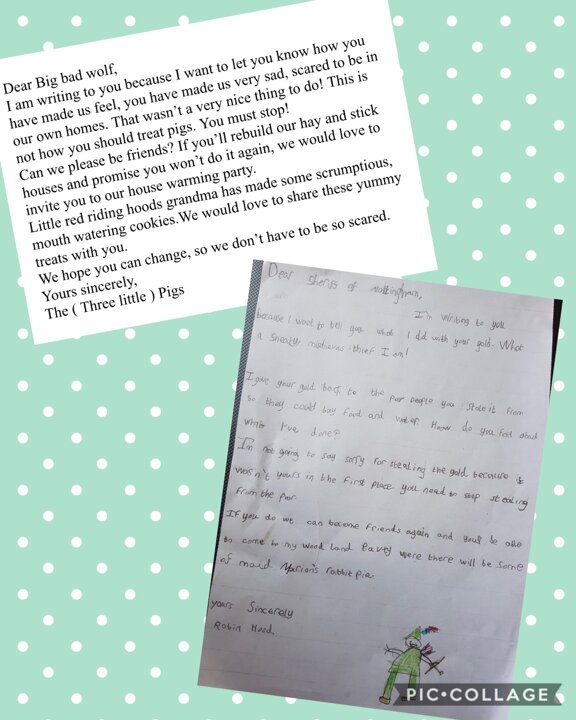 Dear Big bad wolf,
I am writing to you because I want to let you know how you
have made us feel, you have made us very sad, scared to be in
our own homes. That wasn't a very nice thing to do! This is
not how you should treat pigs. You must stop!
Can we please be friends? If you'll rebuild our hay and stick
houses and promise you won't do it again, we would love to
invite you to our house warming party.
Little red riding hoods grandma has made some scrumptious,
mouth watering cookies.We would love to share these yummy
treats with you.
We hope you can change, so we don't have to be so scared.
Yours sincerely,
The ( Three little ) Pigs
Dear of Nottingham,
I'm writing to you
because I want to tell you what I did with your gold. What
a sneaky thief I am!
I gave your gold back to the poor people you stole it from
so they could buy food and water. How do you feel about
what I've done?
I'm not going to say sorry for stealing the gold because
wasn't yours in the first place. you need to stop stealing
from the poor.
If you do we can become friends again and to
to come to my wood land Party were there will be some
of maid Marion's rabbit pie.
yours Sincerely
Robin Hood.
PIC•COLLAGE